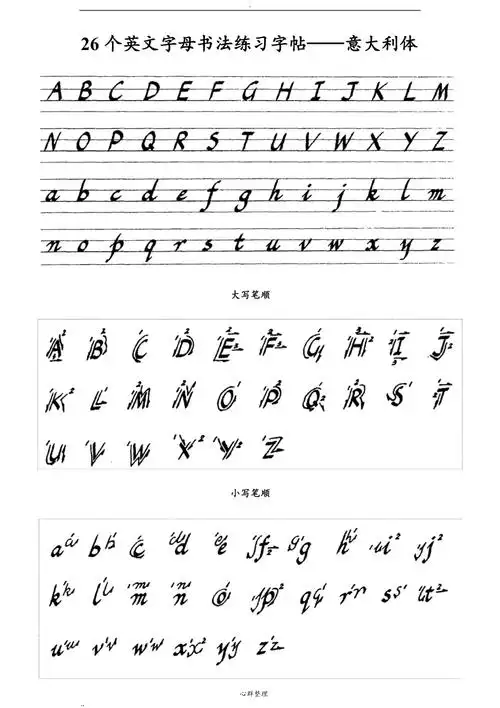 26个英文字母书法练习字帖——意大利体
A B C D E F G H I J K L M
N O P Q R S T U V W X Y Z
a b c d e f g h i j k l m
n o p q r s t u v w x y z
大写笔顺
A B C D E F G H I J
K L M N O P Q R S T
U V W X Y Z
小写笔顺
a b c d e f g h i j
k l m n o p q r s t
u v w x y z
心群整理